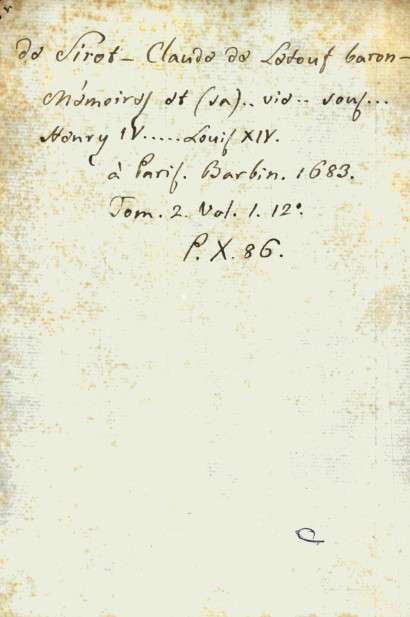 de Sirot - Claude de Letouf baron -
Mémoires et (sa).. vie.. sous...
Henry IV..... Louis XIV.
à Paris. Barbin. 1683.
Tom. 2. Vol. 1. 12°.
P. X. 86.